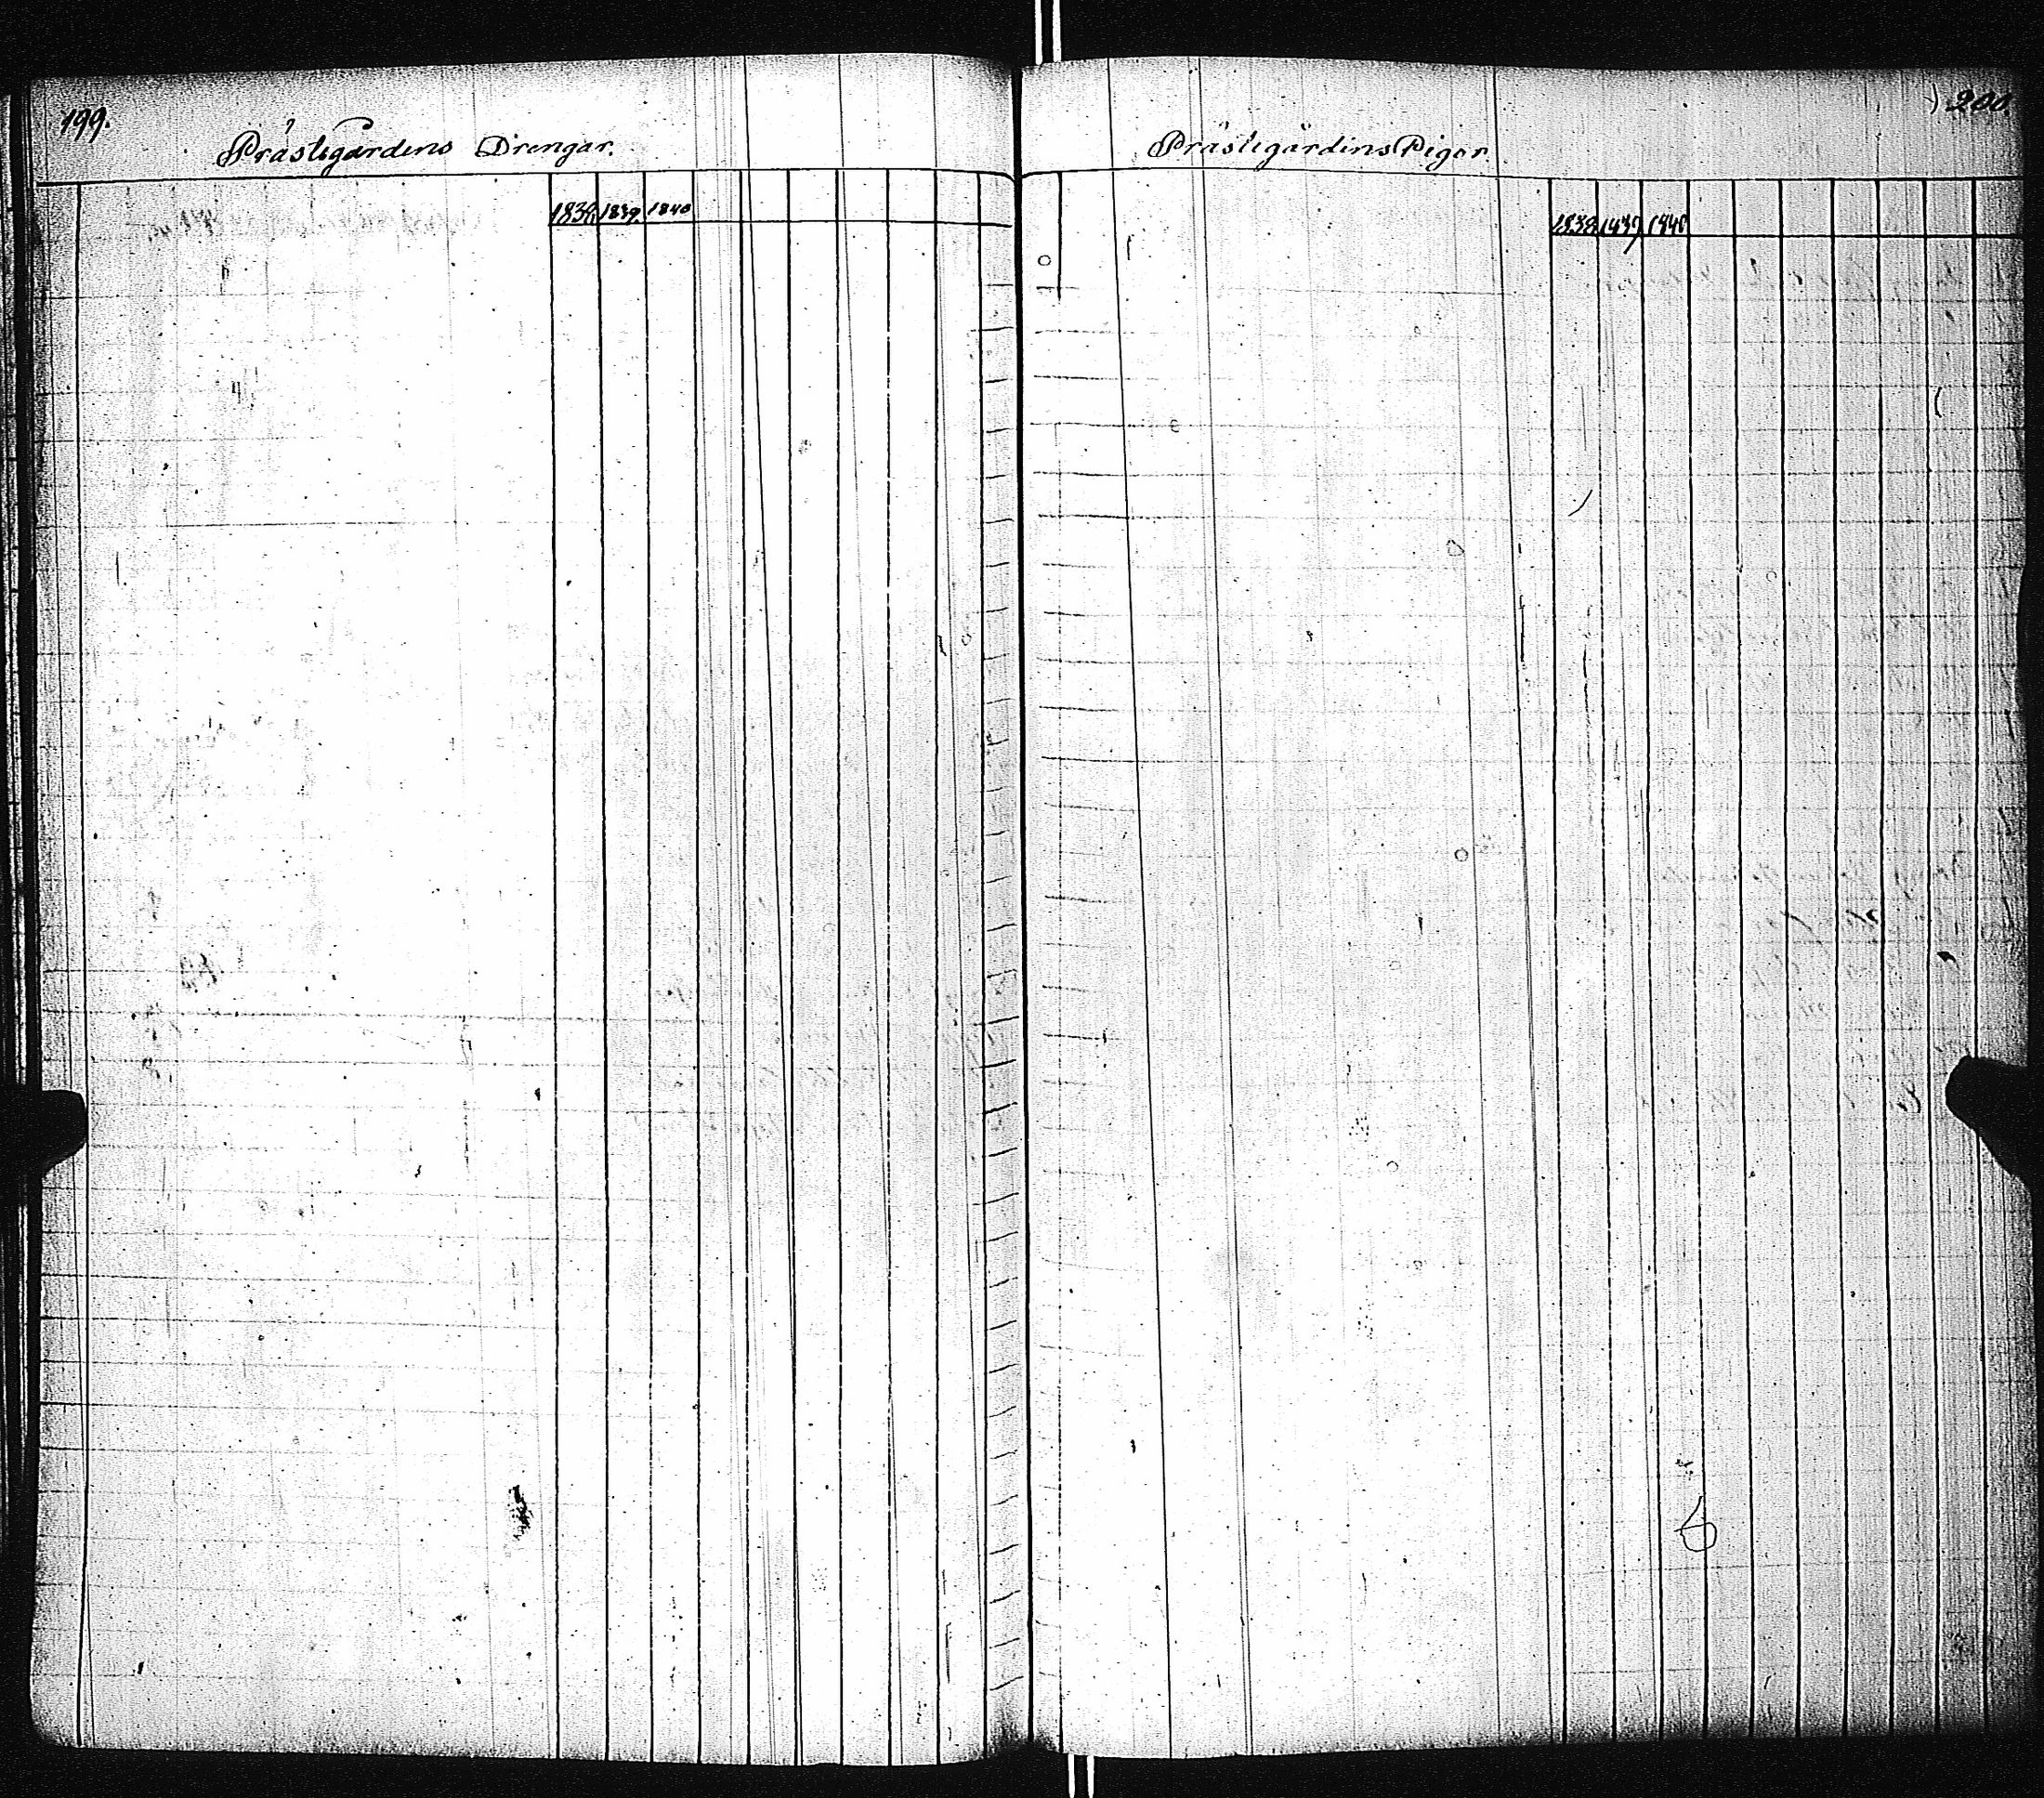 199.
Prästegårdens Drengar.
1838 1839 1840
200.
Prästegårdens Pigor.
1838 1839 1840